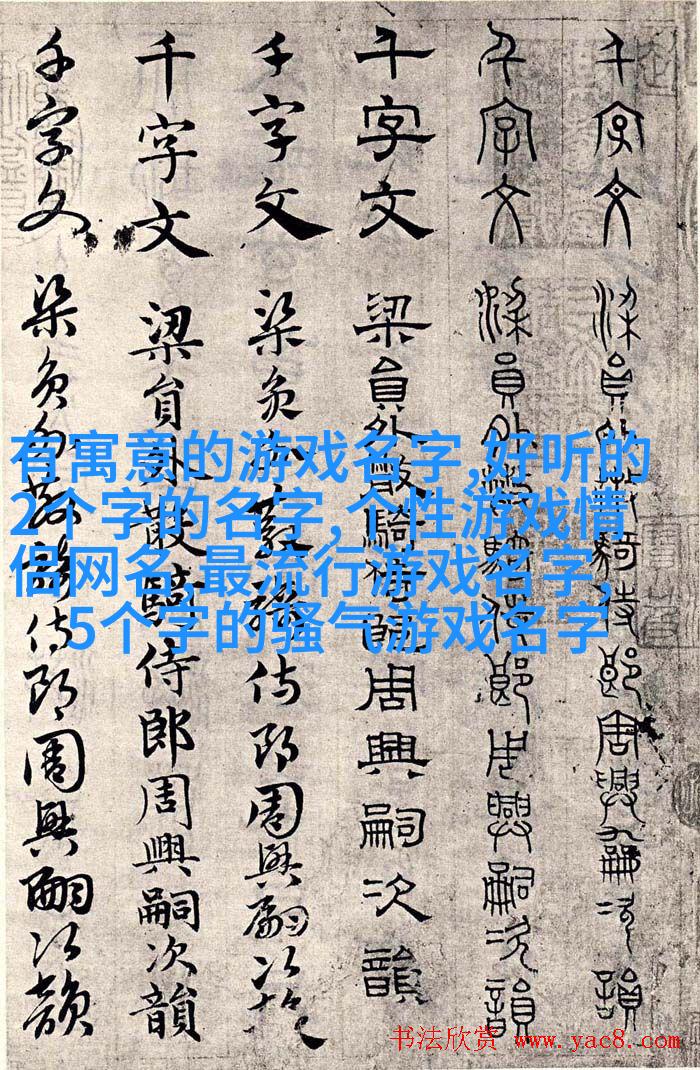 千字文 梁員外散騎侍郎周興嗣次韻
千字文 梁員外散騎侍郎周興嗣次韻
千字文 梁員外散騎侍郎周興嗣次韻
千字文 梁員外散騎侍郎周興嗣次韻
千字文 梁員外散騎侍郎周興嗣次韻
千字文 梁員外散騎侍郎周興嗣次韻
有寓意的游戏名字,好听的
2个字的名字,个性游戏情
侣网名,最流行游戏名字,
5个字的骚气游戏名字
书法欣赏 www.yac8.com